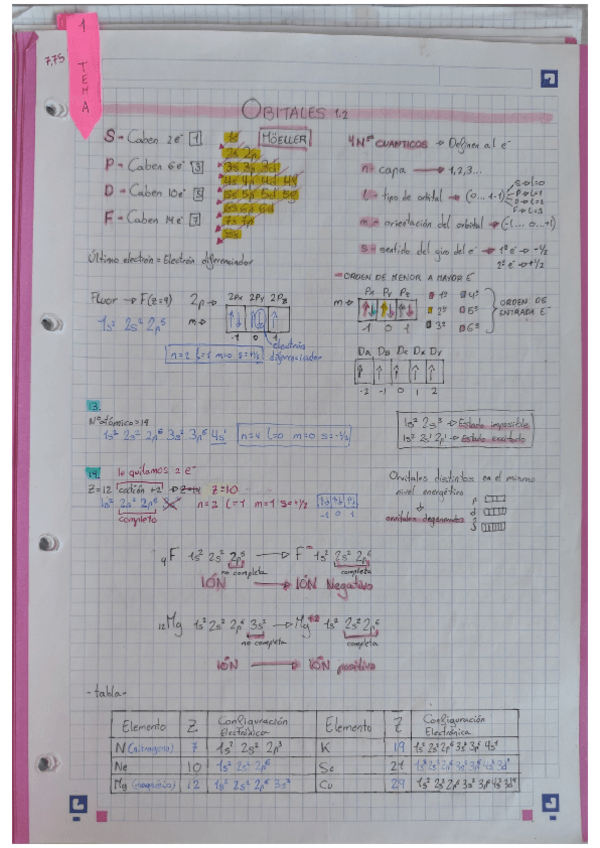 7,75
1 TEMA
ORBITALES 1.2
S - Caben 2e⁻ 1
P - Caben 6e⁻ 3
D - Caben 10e⁻ 5
F - Caben 14e⁻ 7
MÖELLER
1s
2s 2p
3s 3p 3d
4s 4p 4d 4f
5s 5p 5d 5f
6s 6p 6d
7s 7p
8s
4 Nºs CUÁNTICOS → Definen al e⁻
n - capa → 1, 2, 3...
l - tipo de orbital → (0...+-1)
S → l=0
P → l=1
D → l=2
F → l=3
m - orientación del orbital → (-l...0...+l)
s - sentido del giro del e⁻ → 1º e⁻ → -1/2
2º e⁻ → +1/2
Último electrón = Electrón diferenciador
ORDEN DE MENOR A MAYOR E⁻
Px Py Pz
m →
-1 0 1
1º 4º
2º 5º
3º 6º
ORDEN DE ENTRADA E⁻
Fluor → F (Z=9) 2p → 2Px 2Py 2Pz
1s² 2s² 2p⁵ m →
-1 0 1
electrón diferenciador
n=2 l=1 m=0 s=+1/2
-2 -1 0 1 2
13.
Nº atómico = 19
1s² 2s² 2p⁶ 3s² 3p⁶ 4s¹ n=4 l=0 m=0 s=-1/2
1s² 2s³ → Estado imposible
1s² 2s¹ 2p¹ → Estado excitado
14. le quitamos 2 e⁻
Z=12 catión +2 → Z=10
1s² 2s² 2p⁶ n=2 l=1 m=1 s=+1/2
-1 0 1
completo
Orbitales distintos en el mismo
nivel energético
orbitales degenerados
p
d
f
₉F 1s² 2s² 2p⁵ → F⁻ 1s² 2s² 2p⁶
no completa completa
IÓN → IÓN Negativo
₁₂Mg 1s² 2s² 2p⁶ 3s² → Mg⁺² 1s² 2s² 2p⁶
no completa completa
IÓN → IÓN positivo
- tabla -
Elemento Z Configuración Electrónica Elemento Z Configuración Electrónica
N (nitrógeno) 7 1s² 2s² 2p³ K 19 1s² 2s² 2p⁶ 3s² 3p⁶ 4s¹
Ne 10 1s² 2s² 2p⁶ Sc 21 1s² 2s² 2p⁶ 3s² 3p⁶ 4s² 3d¹
Mg (magnesio) 12 1s² 2s² 2p⁶ 3s² Cu 29